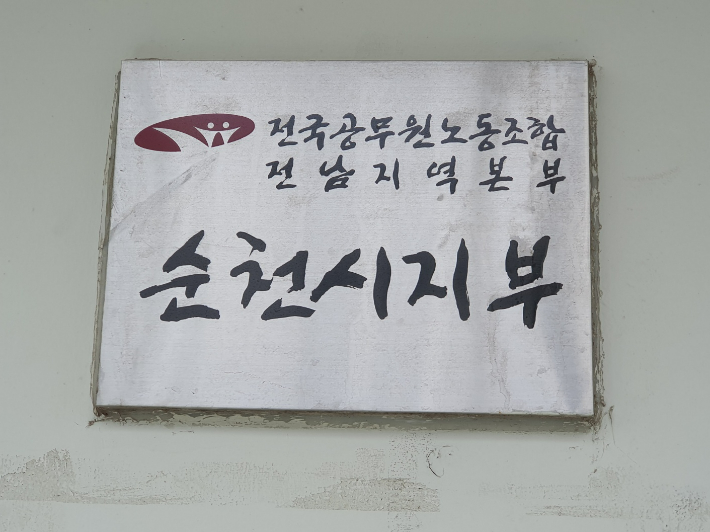 전국공무원노동조합
전남지역본부
순천시지부